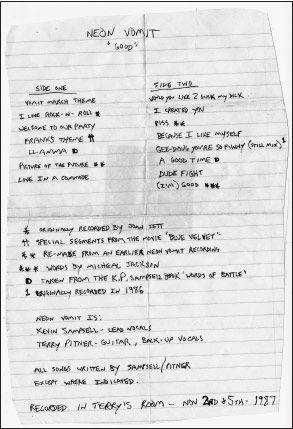 NEON VOMIT
"GOOD"
SIDE ONE
VOMIT MARCH THEME
I LOVE ROCK-N-ROLL *
WELCOME TO OUR PARTY
FRANKS THEME #
LLANWA D
PICTURE OF THE FUTURE **
LIVE IN A COMMODE
SIDE TWO
WOULD YOU LIKE 2 SUCK MY DICK
I CREATED YOU
PISS **
BECAUSE I LIKE MYSELF
GEE-DOUG YOU'RE SO FUNNY (STILL MIX) 1
A GOOD TIME D
DUDE FIGHT
(I'M) GOOD ***
* ORIGINALLY RECORDED BY JOAN JETT
# SPECIAL SEGMENTS FROM THE MOVIE 'BLUE VELVET'
** RE-MADE FROM AN EARLIER NEON VOMIT RECORDING
*** WORDS BY MICHEAL JACKSON
D TAKEN FROM THE K.P. SAMPSELL BOOK 'WORDS OF BATTLE'
1 ORIGINALLY RECORDED IN 1986
NEON VOMIT IS:
KEVIN SAMPSELL - LEAD VOCALS
TERRY PITNER - GUITAR, BACK-UP VOCALS
ALL SONGS WRITTEN BY SAMPSELL/PITNER
EXCEPT WHERE INDICATED.
RECORDED IN TERRY'S ROOM - NOV 2ND & 5TH - 1987